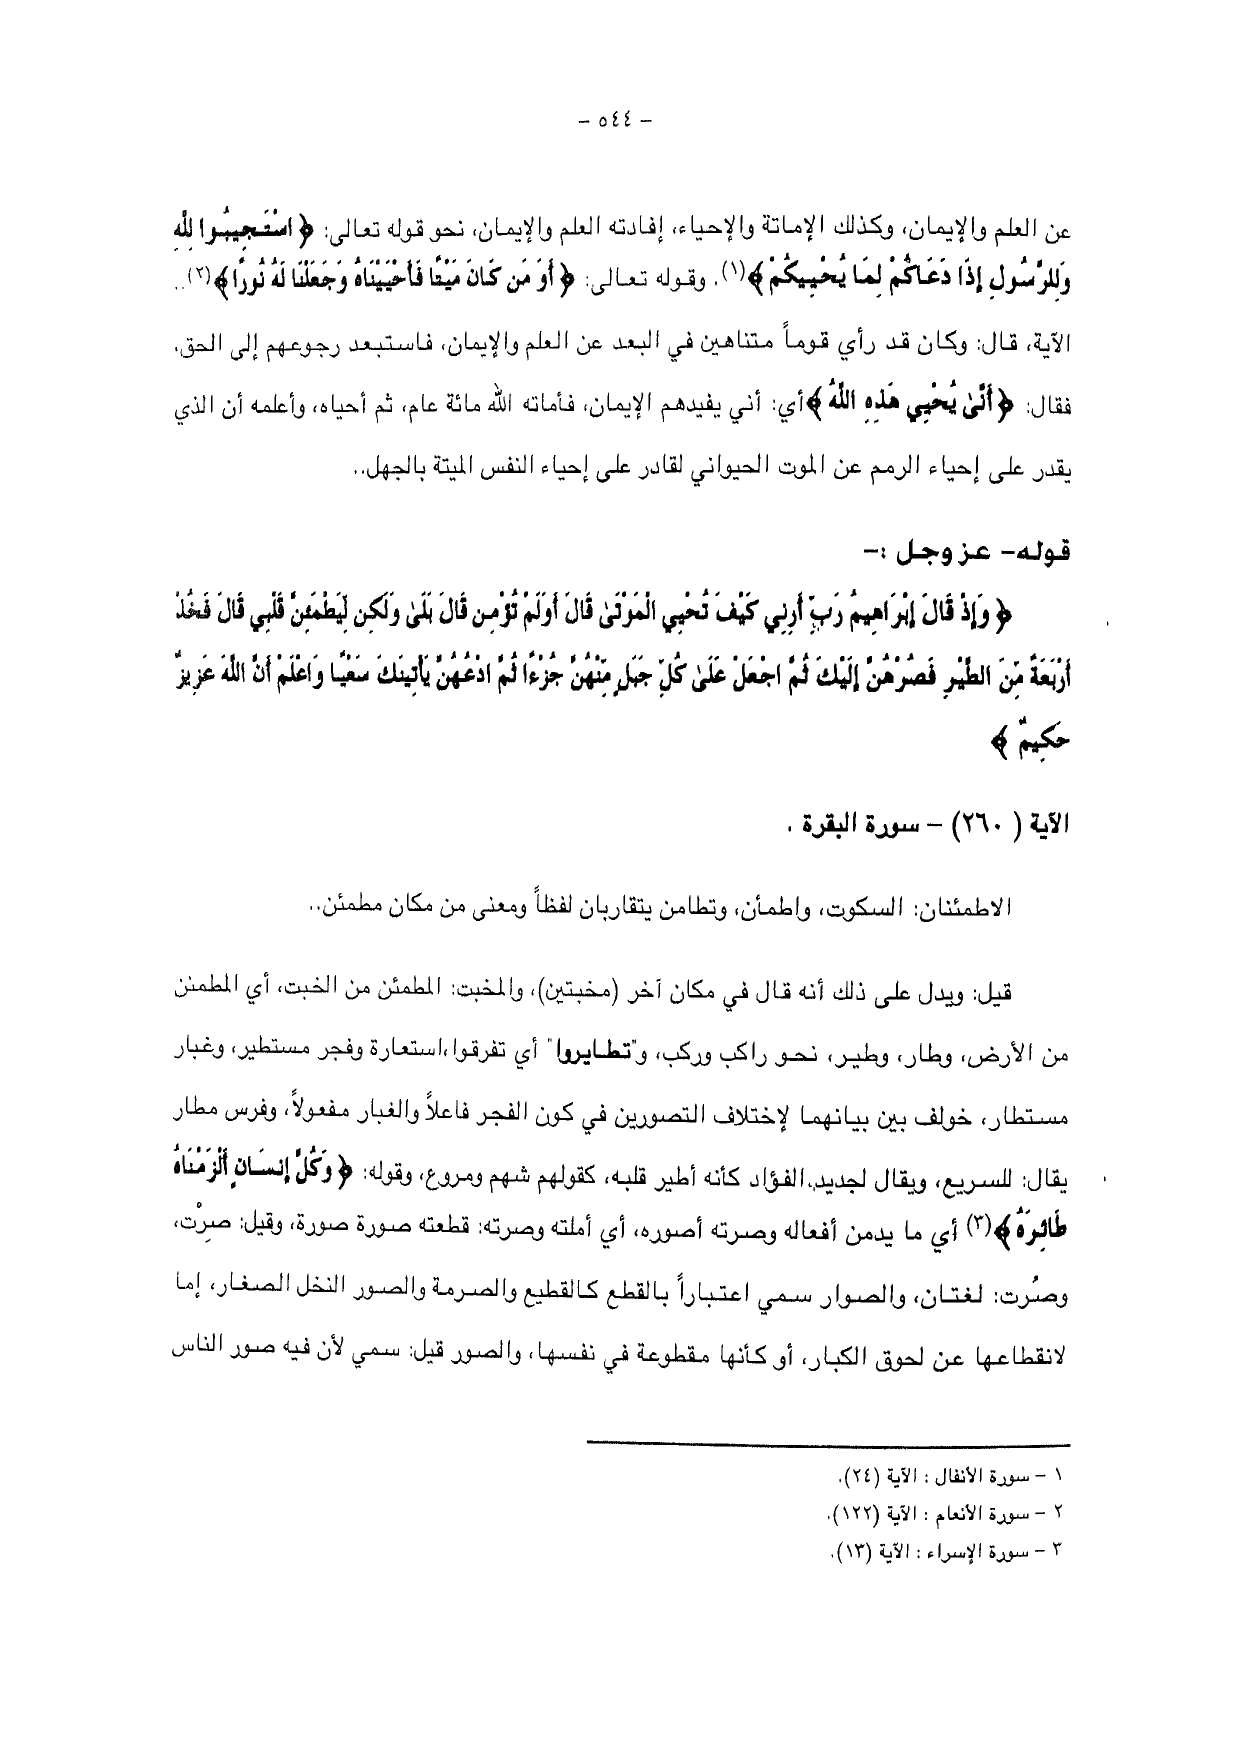 - ٥٤٤ -
عن العلم والإيمان، وكذلك الإماتة والإحياء، إفادته العلم والإيمان، نحو قوله تعالى: ﴿ اسْتَجِيبُوا لِلَّهِ
وَلِلرَّسُولِ إِذَا دَعَاكُمْ لِمَا يُحْيِيكُمْ ﴾(١). وقوله تعالى: ﴿ أَوَ مَن كَانَ مَيْتًا فَأَحْيَيْنَاهُ وَجَعَلْنَا لَهُ نُورًا ﴾(٢)..
الآية، قال: وكان قد رأي قوماً متناهين في البعد عن العلم والإيمان، فاستبعد رجوعهم إلى الحق.
فقال: ﴿ أَنَّىٰ يُحْيِي هَذِهِ اللَّهُ ﴾أي: أني يفيدهم الإيمان، فأماته الله مائة عام، ثم أحياه، وأعلمه أن الذي
يقدر على إحياء الرمم عن الموت الحيواني لقادر على إحياء النفس الميتة بالجهل..
قوله- عز وجل :-
﴿ وَإِذْ قَالَ إِبْرَاهِيمُ رَبِّ أَرِنِي كَيْفَ تُحْيِي الْمَوْتَىٰ قَالَ أَوَلَمْ تُؤْمِن قَالَ بَلَىٰ وَلَكِن لِيَطْمَئِنَّ قَلْبِي قَالَ فَخُذْ
أَرْبَعَةً مِّنَ الطَّيْرِ فَصُرْهُنَّ إِلَيْكَ ثُمَّ اجْعَلْ عَلَىٰ كُلِّ جَبَلٍ مِّنْهُنَّ جُزْءًا ثُمَّ ادْعُهُنَّ يَأْتِينَكَ سَعْيًا وَاعْلَمْ أَنَّ اللَّهَ عَزِيزٌ
حَكِيمٌ ﴾
الآية ( ٢٦٠) - سورة البقرة .
الاطمئنان: السكوت، واطمأن، وتطامن يتقاربان لفظاً ومعنى من مكان مطمئن..
قيل: ويدل على ذلك أنه قال في مكان آخر (مخبتين)، والمخبت: المطمئن من الخبت، أي المطمئن
من الأرض، وطار، وطير، نحو راكب وركب، و"تطايروا" أي تفرقوا،استعارة وفجر مستطير، وغبار
مستطار، خولف بين بيانهما لإختلاف التصورين في كون الفجر فاعلاً والغبار مفعولاً، وفرس مطار
يقال: للسريع، ويقال لجديد.الفؤاد كأنه أطير قلبه، كقولهم شهم ومروع، وقوله: ﴿ وَكُلَّ إِنسَانٍ أَلْزَمْنَاهُ
طَائِرَهُ ﴾(٣) أي ما يدمن أفعاله وصرته أصوره، أي أملته وصرته: قطعته صورة صورة، وقيل: صِرْت،
وصُرت: لغتان، والصوار سمي اعتباراً بالقطع كالقطيع والصرمة والصور النخل الصغار، إما
لانقطاعها عن لحوق الكبار، أو كأنها مقطوعة في نفسها، والصور قيل: سمي لأن فيه صور الناس
١ - سورة الأنفال : الآية (٢٤).
٢ - سورة الأنعام : الآية (١٢٢).
٣ - سورة الإسراء : الآية (١٣).